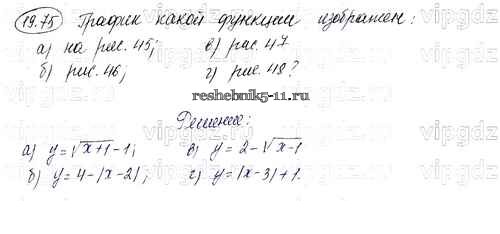 19.75 График какой функции изображен:
а) на рис. 45; в) рис. 47
б) рис. 46; г) рис. 48?
reshebnik5-11.ru
Решение:
а) y=√x+1-1; в) y=2-√x-1
б) y=4-|x-2|; г) y=|x-3|+1.
vipgdz